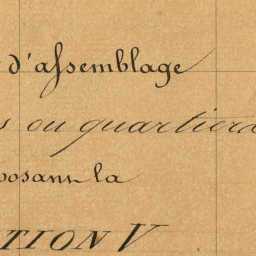 d'assemblage
s ou quartiers
posant la
TION V